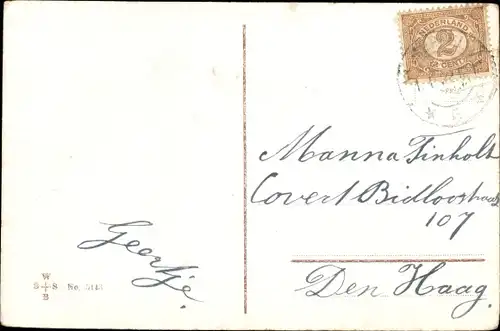 NEDERLAND
2
Manna Tinholt
Covert Bidloostraat
107
Den Haag.
Geertje.
W
S + S No.
B